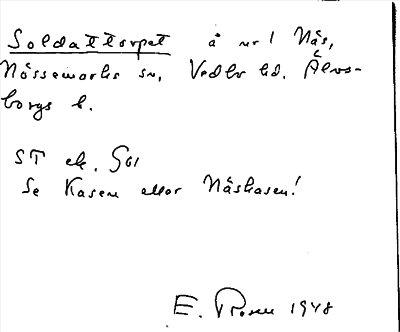 Soldattorpet å nr 1 Näs,
Nössemarks sn, Vedbo hd. Älvs-
borgs l.
ST ek. S 61
Se Kasen eller Näskasen!
E. Rosen 1948